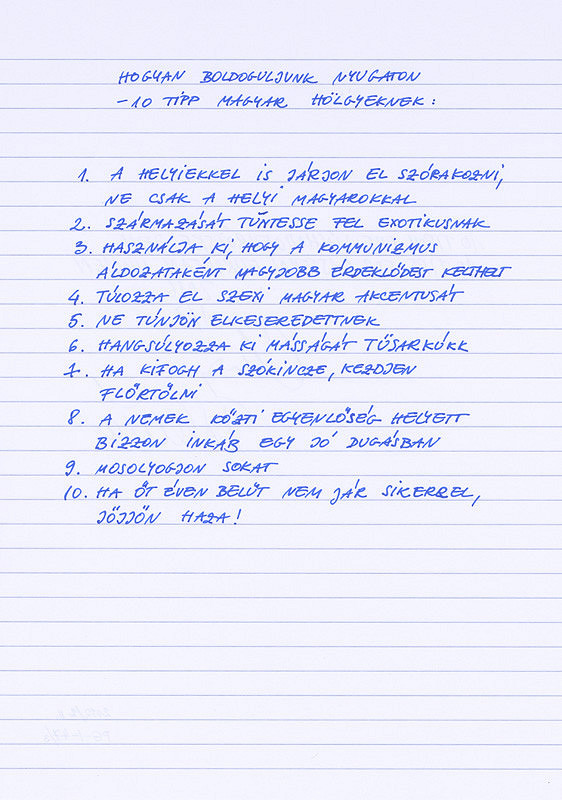 HOGYAN BOLDOGULJUNK NYUGATON
- 10 TIPP MAGYAR HÖLGYEKNEK:
1. A HELYIEKKEL IS JÁRJON EL SZÓRAKOZNI,
NE CSAK A HELYI MAGYAROKKAL
2. SZÁRMAZÁSÁT TŰNTESSE FEL EXOTIKUSNAK
3. HASZNÁLJA KI, HOGY A KOMMUNIZMUS
ÁLDOZATAKÉNT NAGYJOBB ÉRDEKLŐDEST KELTHELT
4. TÚLOZZA EL SZEXI MAGYAR AKCENTUSÁT
5. NE TŰNJÖN ELKESEREDETTNEK
6. HANGSÚLYOZZA KI MÁSSÁGÁT TŰSARKÚKK
7. HA KIFOGH A SZÓKINCZE, KEZDJEN
FLÖRTÖLNI
8. A NEMEK KÖZTI EGYENLŐSÉG HELYETT
BIZZON INKÁB EGY JÓ DUGÁSBAN
9. MOSOLYOGJON SOKAT
10. HA ÖT ÉVEN BELÜT NEM JÁR SIKERREL,
JÖJJÖN HAZA!